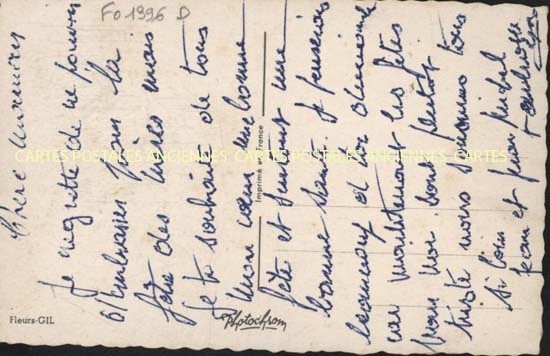 Fo 1396 D
Chère
Je regrette de ne pouvoir
t'embrasser pour la
fête des mères mais
Je te souhaite de tous
mon cœur une bonne
fête et surtout une
bonne santé. J
beaucoup et dimanche
car maintenant les fêtes
pour moi sont plutôt
triste nous sommes tous
si loin
Jean et Jean Michel
t'embrasse
Imprimé France
CARTES POSTALES ANCIENNES CARTES POSTALES ANCIENNES CARTES
Fleurs-GIL
Photochrom